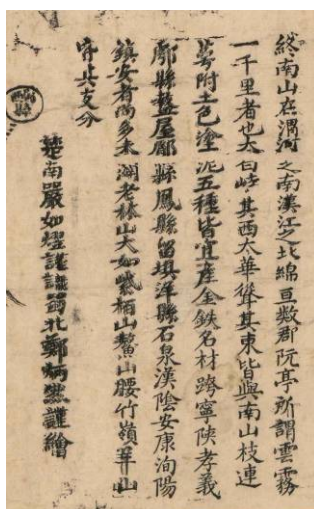 終南山在渭河之南漢江之北綿亘數郡阮亭所謂雲霧
一千里者也太白峙其西太華聳其東皆與南山枝連
萼附土色塗泥五種皆宜產金鉄名材跨寧陝孝義
鄠縣盩厔郿縣鳳縣留埧洋縣石泉漢陰安康洵陽
鎮安者尚多未闢老林山大如紫柏山鰲山腰竹嶺
皆其支分
楚南嚴如熤謹識蒟北鄭炳然謹繪